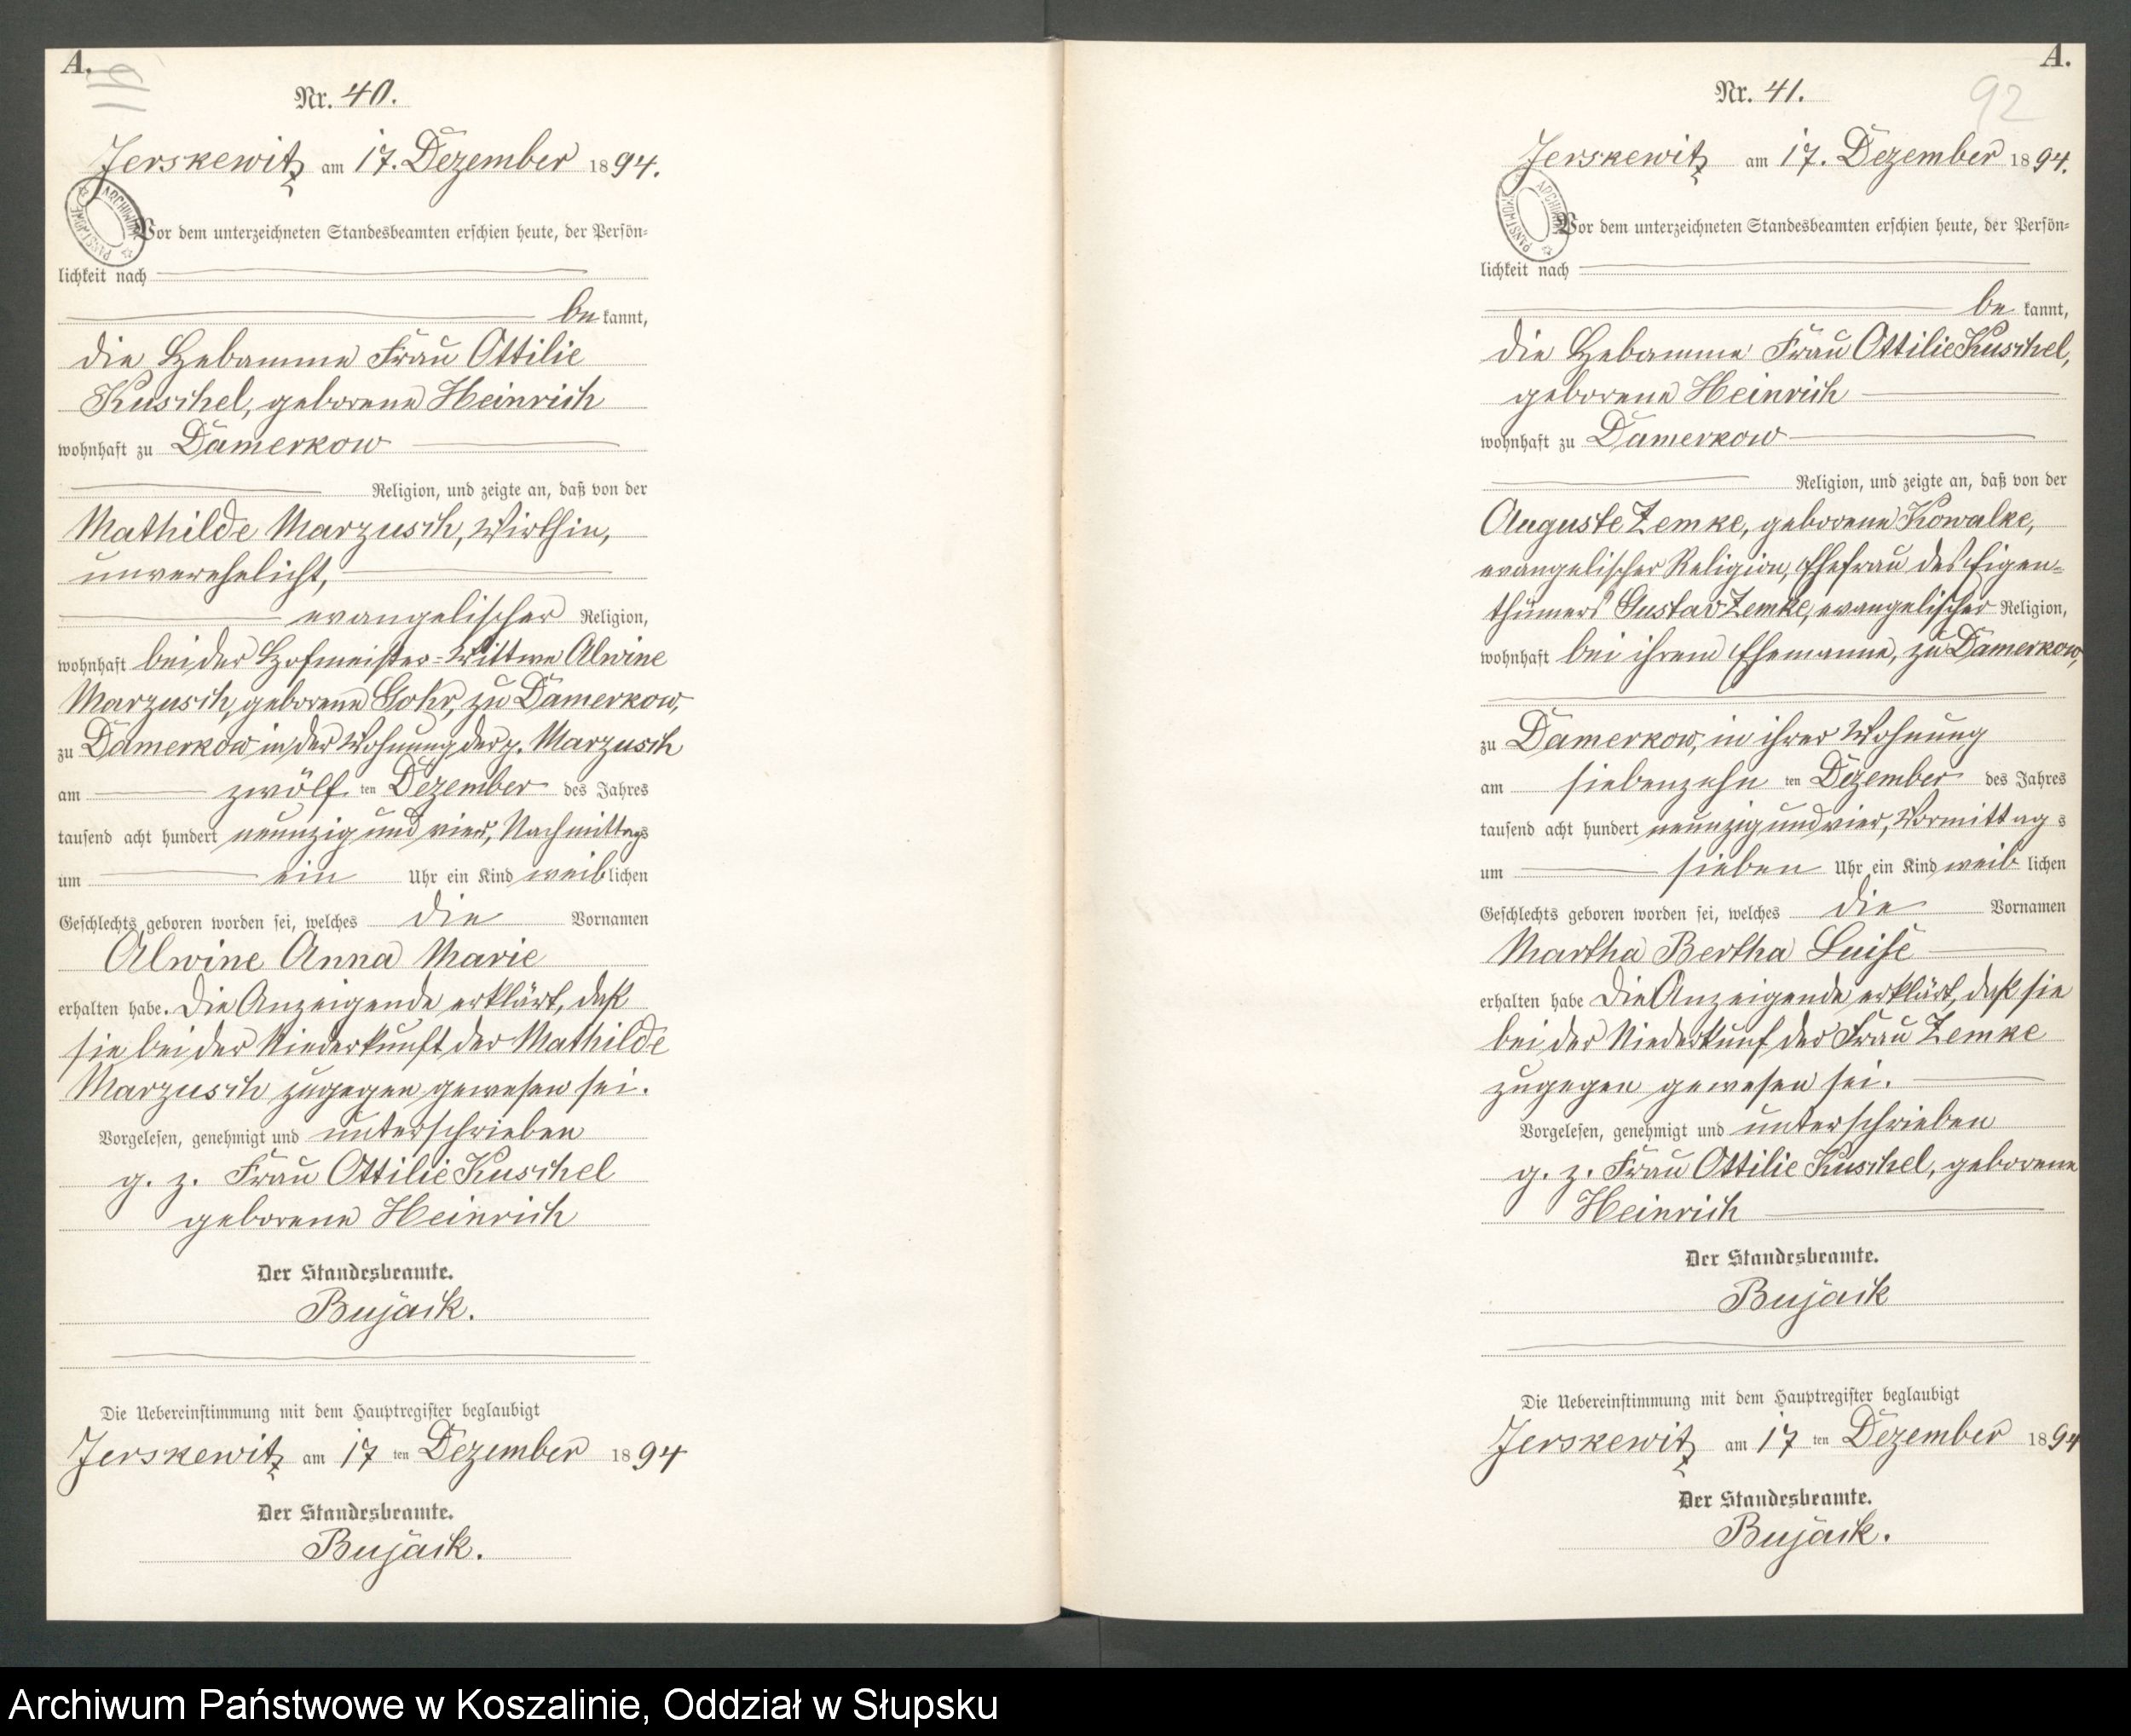 A.
Nr. 40.
Jerskewitz am 17. Dezember 1894.
Vor dem unterzeichneten Standesbeamten erschien heute, der Persön-
lichkeit nach
be kannt,
die Hebamme Frau Ottilie
Kuschel, geborene Heinrich
wohnhaft zu Damerkow
Religion, und zeigte an, daß von der
Mathilde Marzusch, Wirthin,
unverehelicht,
evangelischer Religion,
wohnhaft bei der Hofmeister-Wittwe Alwine
Marzusch, geborene Gohr, zu Damerkow,
zu Damerkow in der Wohnung der p. Marzusch
am zwölf ten Dezember des Jahres
tausend acht hundert neunzig und vier, Nachmittags
um ein Uhr ein Kind weiblichen
Geschlechts geboren worden sei, welches die Vornamen
Alwine Anna Marie
erhalten habe. Die Anzeigende erklärt, daß
sie bei der Niederkunft der Mathilde
Marzusch zugegen gewesen sei.
Vorgelesen, genehmigt und unterschrieben
g. z. Frau Ottilie Kuschel
geborene Heinrich
Der Standesbeamte.
Bujack.
Die Uebereinstimmung mit dem Hauptregister beglaubigt
Jerskewitz am 17 ten Dezember 1894
Der Standesbeamte.
Bujack.
A.
92
Nr. 41.
Jerskewitz am 17. Dezember 1894.
ARCHIWUM PAŃSTWOWE
Vor dem unterzeichneten Standesbeamten erschien heute, der Persön-
lichkeit nach
be kannt,
die Hebamme Frau Ottilie Kuschel,
geborene Heinrich
wohnhaft zu Damerkow
Religion, und zeigte an, daß von der
Auguste Zemke, geborene Kowalke,
evangelischer Religion, Ehefrau des Eigen-
thümers Gustav Zemke, evangelischer Religion,
wohnhaft bei ihrem Ehemanne, zu Damerkow,
zu Damerkow, in ihrer Wohnung
am siebenzehn ten Dezember des Jahres
tausend acht hundert neunzig und vier, Vormittag s
um sieben Uhr ein Kind weib lichen
Geschlechts geboren worden sei, welches die Vornamen
Martha Bertha Luise
erhalten habe Die Anzeigende erklärt, daß sie
bei der Niederkunf der Frau Zemke
zugegen gewesen sei.
Vorgelesen, genehmigt und unterschrieben
g. z. Frau Ottilie Kuschel, geborene
Heinrich
Der Standesbeamte.
Bujack
Die Uebereinstimmung mit dem Hauptregister beglaubigt
Jerskewitz am 17 ten Dezember 1894
Der Standesbeamte.
Bujack.
Archiwum Państwowe w Koszalinie, Oddział w Słupsku